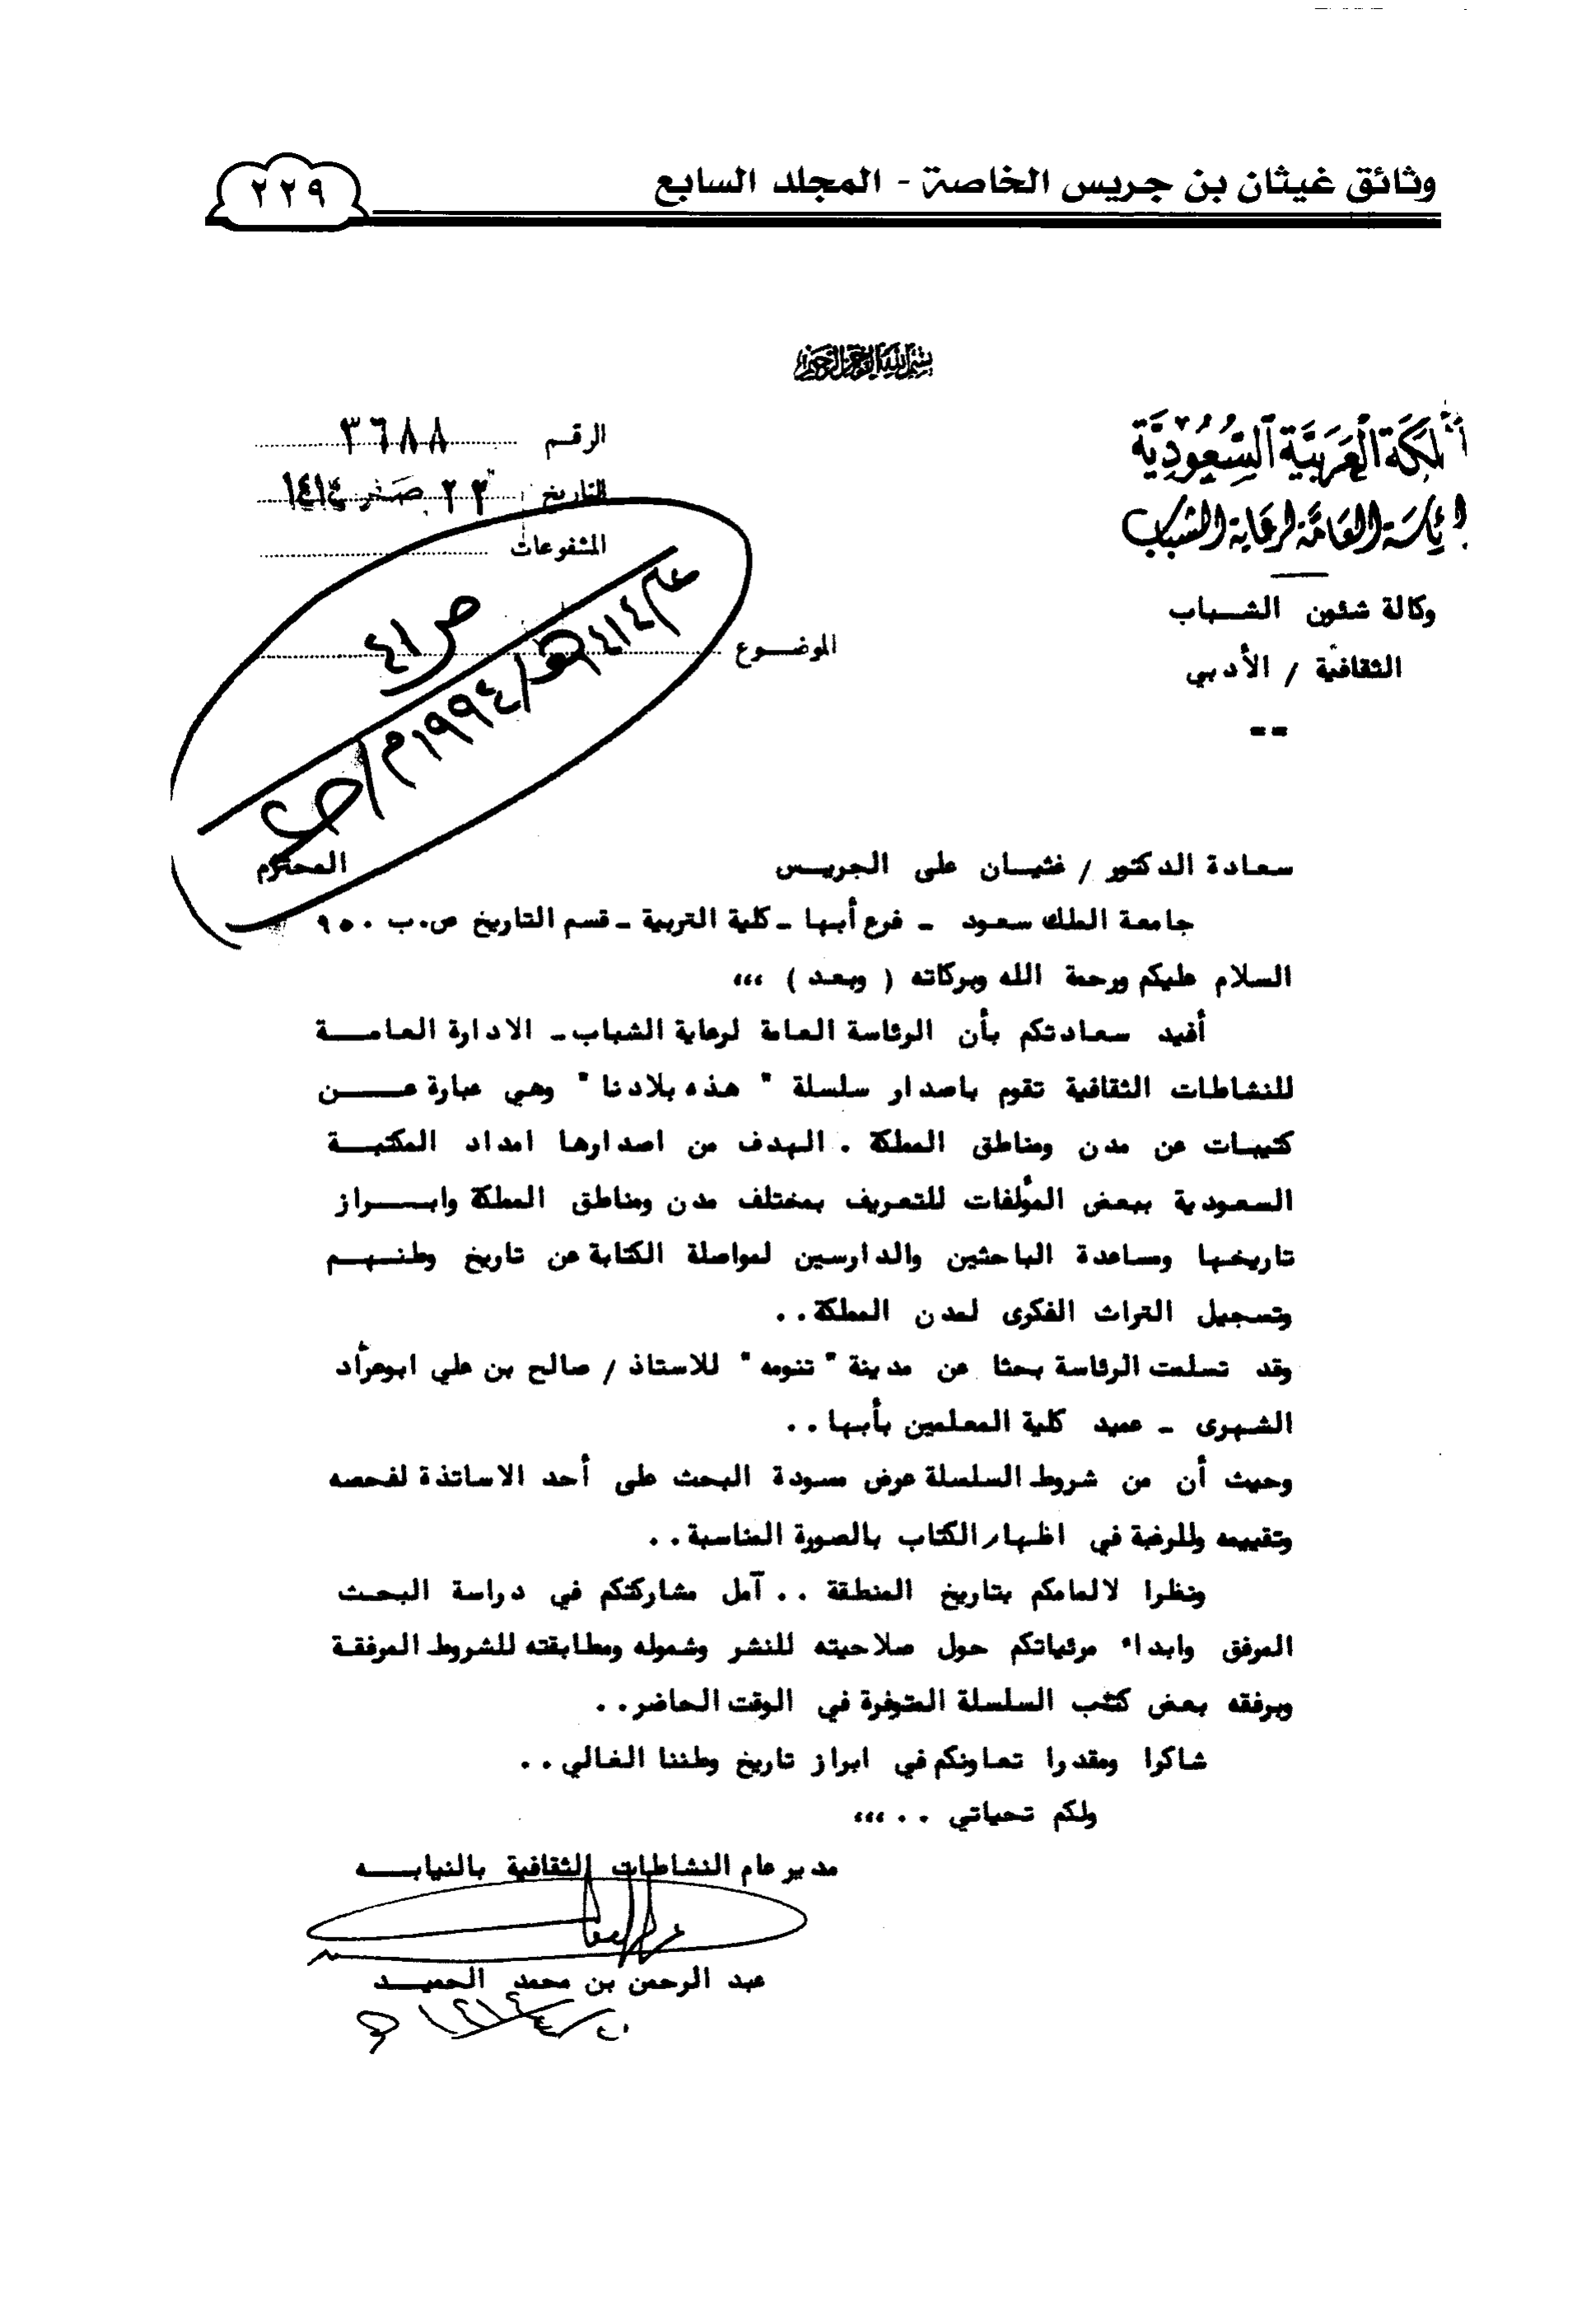 وثائق غيثان بن جريس الخاصة - المجلد السابع
٢٢٩
بسم الله الرحمن الرحيم
المملكة العربية السعودية
الرئاسة العامة لرعاية الشباب
وكالة شئون الشــباب
الثقافية / الأدبي
==
الرقم ٣٦٨٨
التاريخ ٢٣ صفر ١٤١٤
المشفوعات
الموضــوع
ص ٤١
١٤١٤هـ/١٩٩٤م
سعادة الدكتور / غثيــان على الجريــس المحترم
جامعة الملك سعود - فرع أبها - كلية التربية - قسم التاريخ ص.ب ٩٥٠
السلام عليكم ورحمة الله وبركاته ( وبعد ) ،،،
أفيد سعادتكم بأن الرئاسة العامة لرعاية الشباب - الادارة العامــــة
للنشاطات الثقافية تقوم باصدار سلسلة " هذه بلادنا " وهي عبارة عــــن
كتيبات عن مدن ومناطق المملكة . الهدف من اصدارها امداد المكتبــة
السعودية ببعض المؤلفات للتعريف بمختلف مدن ومناطق المملكة وابـــراز
تاريخها ومساعدة الباحثين والدارسين لمواصلة الكتابة عن تاريخ وطنــهم
وتسجيل التراث الفكرى لمدن المملكة ..
وقد تسلمت الرئاسة بحثا عن مدينة " تنومه " للاستاذ / صالح بن علي ابوعرأد
الشهرى - عميد كلية المعلمين بأبها ..
وحيث أن من شروط السلسلة عرض مسودة البحث على أحد الاساتذة لفحصه
وتقييمه وللرغبة في اظهار الكتاب بالصورة المناسبة ..
ونظرا لالمامكم بتاريخ المنطقة .. آمل مشاركتكم في دراسة البحث
المرفق وابداء مرئياتكم حول صلاحيته للنشر وشموله ومطابقته للشروط المرفقة
وبرفقه بعض كتب السلسلة المتوفرة في الوقت الحاضر ..
شاكرا ومقدرا تعاونكم في ابراز تاريخ وطننا الغالي ..
ولكم تحياتي .. ،،،
مدير عام النشاطات الثقافية بالنيابـــه
عبد الرحمن بن محمد الحميــد